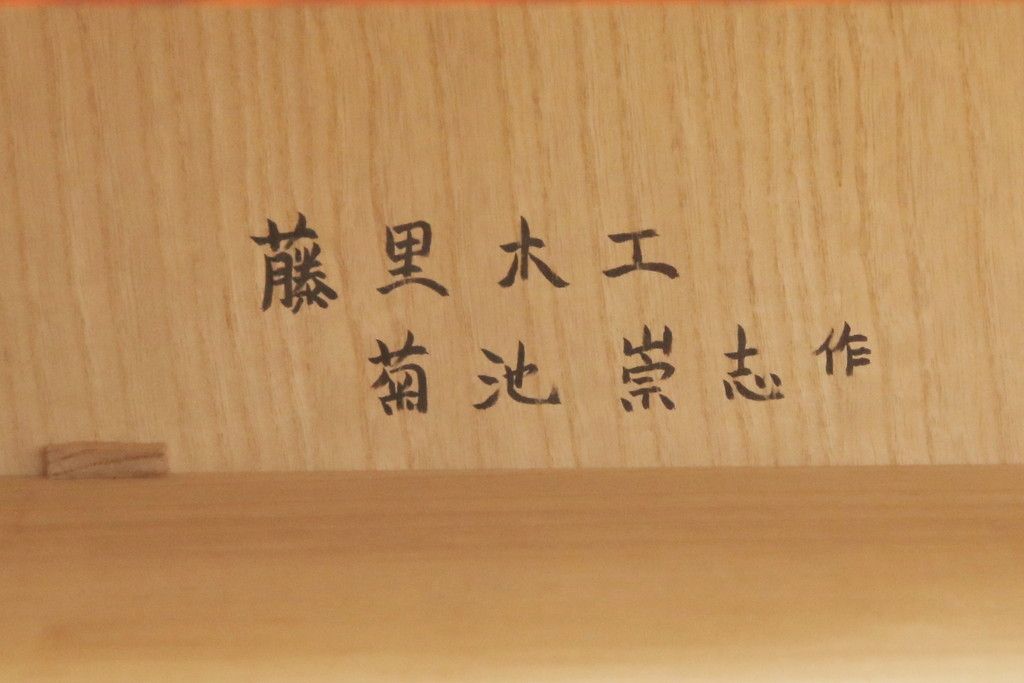 藤里木工
菊池崇志作